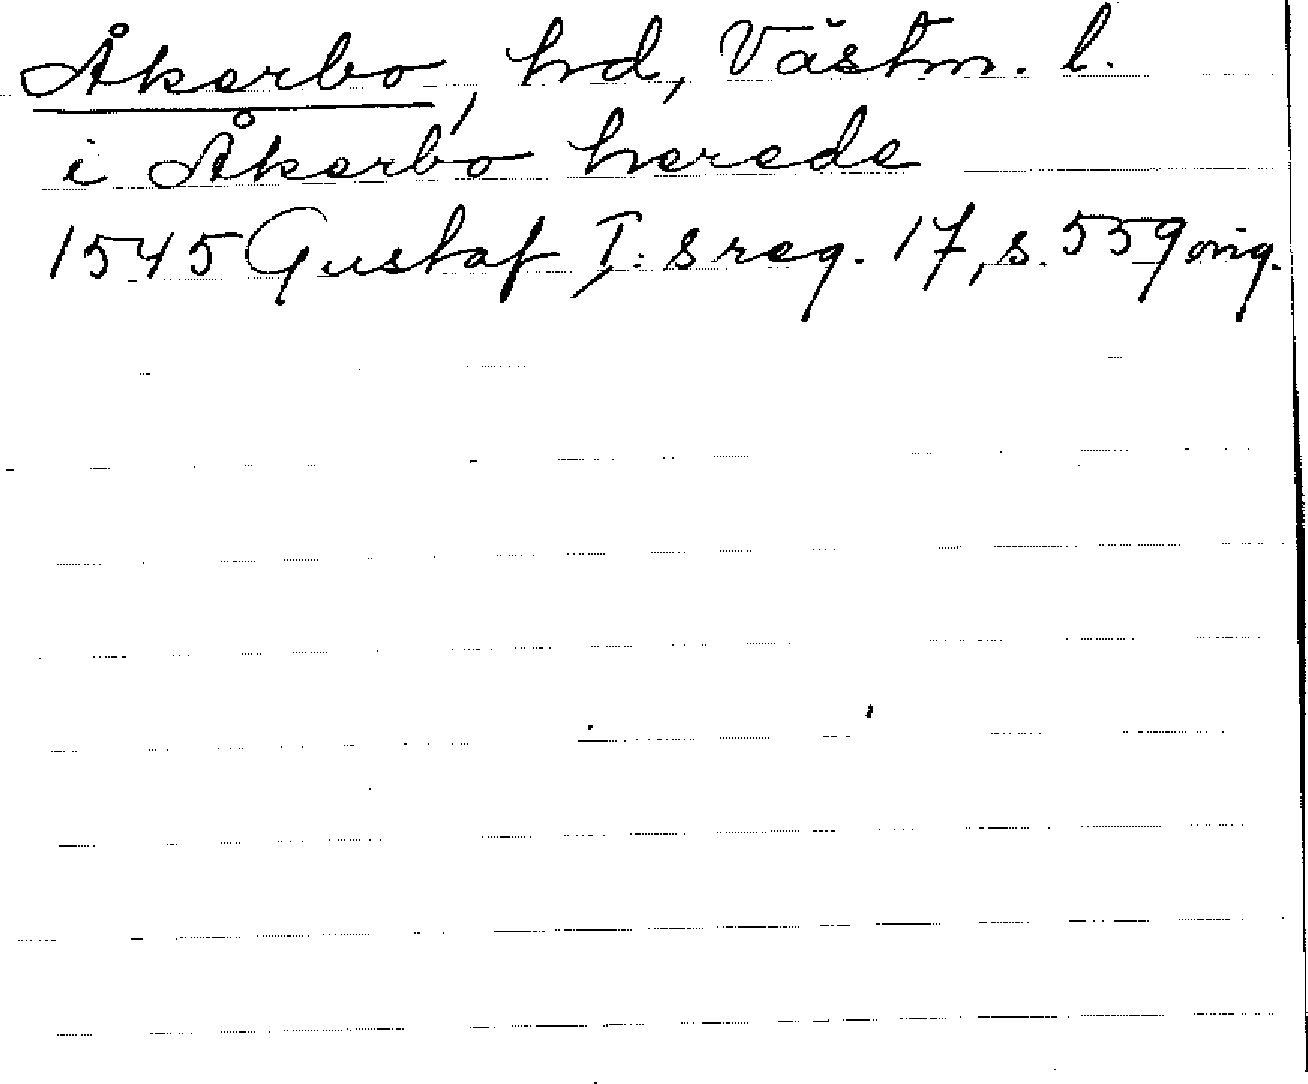 Åkerbo, hd, Västm. l.
i Åkerbo herede
1545 Gustaf I:s reg. 17, s. 559 orig.